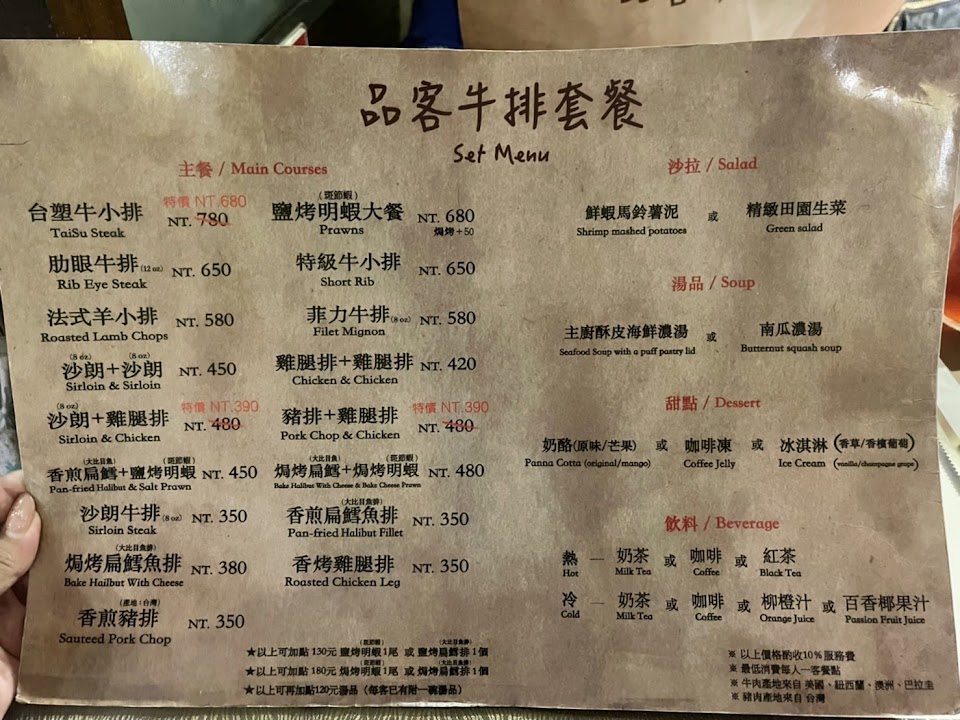 品客牛排套餐
Set Menu
主餐 / Main Courses
特價 NT.680
台塑牛小排 NT. 780
TaiSu Steak
肋眼牛排(12 oz) NT. 650
Rib Eye Steak
法式羊小排 NT. 580
Roasted Lamb Chops
(8 oz) (8 oz)
沙朗+沙朗 NT. 450
Sirloin & Sirloin
(8 oz) 特價 NT.390
沙朗+雞腿排 NT. 480
Sirloin & Chicken
(大比目魚) (斑節蝦)
香煎扁鱈+鹽烤明蝦 NT. 450
Pan-fried Halibut & Salt Prawn
沙朗牛排(8 oz) NT. 350
Sirloin Steak
(大比目魚排)
焗烤扁鱈魚排 NT. 380
Bake Hailbut With Cheese
(產地:台灣)
香煎豬排 NT. 350
Sauteed Pork Chop
(斑節蝦)
鹽烤明蝦大餐 NT. 680
Prawns 焗烤+50
特級牛小排 NT. 650
Short Rib
菲力牛排(8 oz) NT. 580
Filet Mignon
雞腿排+雞腿排 NT. 420
Chicken & Chicken
特價 NT.390
豬排+雞腿排 NT. 480
Pork Chop & Chicken
(大比目魚) (斑節蝦)
焗烤扁鱈+焗烤明蝦 NT. 480
Bake Halibut With Cheese & Bake Cheese Prawn
(大比目魚排)
香煎扁鱈魚排 NT. 350
Pan-fried Halibut Fillet
香烤雞腿排 NT. 350
Roasted Chicken Leg
(斑節蝦) (大比目魚排)
★以上可加點 130元 鹽烤明蝦 1尾 或 鹽烤扁鱈排 1個
(斑節蝦) (大比目魚排)
★以上可加點 180元 焗烤明蝦 1尾 或 焗烤扁鱈排 1個
★以上可再加點120元湯品 (每客已有附一碗湯品)
沙拉 / Salad
鮮蝦馬鈴薯泥 或 精緻田園生菜
Shrimp mashed potatoes Green salad
湯品 / Soup
主廚酥皮海鮮濃湯 或 南瓜濃湯
Seafood Soup with a puff pastry lid Butternut squash soup
甜點 / Dessert
奶酪(原味/芒果) 或 咖啡凍 或 冰淇淋 (香草/香檳葡萄)
Panna Cotta (original/mango) Coffee Jelly Ice Cream (vanilla/champagne grape)
飲料 / Beverage
熱 — 奶茶 或 咖啡 或 紅茶
Hot Milk Tea Coffee Black Tea
冷 — 奶茶 或 咖啡 或 柳橙汁 或 百香椰果汁
Cold Milk Tea Coffee Orange Juice Passion Fruit Juice
※ 以上價格酌收10%服務費
※ 最低消費每人一客餐點
※ 牛肉產地來自 美國、紐西蘭、澳洲、巴拉圭
※ 豬肉產地來自 台灣